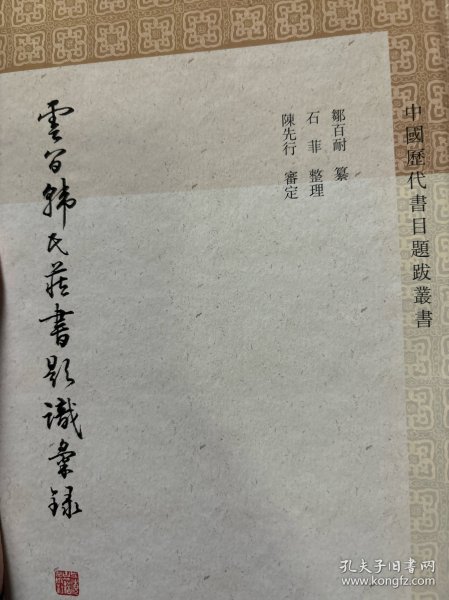 中國歷代書目題跋叢書
鄒百耐 纂
石菲 整理
陳先行 審定
雲間韓氏藏書題識彙録
孔夫子旧书网
www.kongfz.com